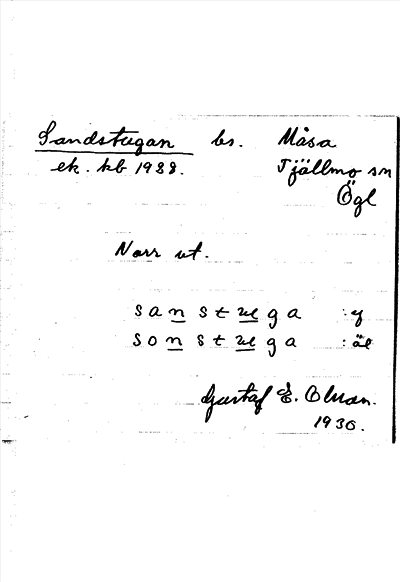 Sandstugan bs. Måsa
ek. kb 1938. Tjällmo sn
Ögl
Norr ut.
sanstuga : y
sonstuga : äl
Gustaf E. Olson.
1930.